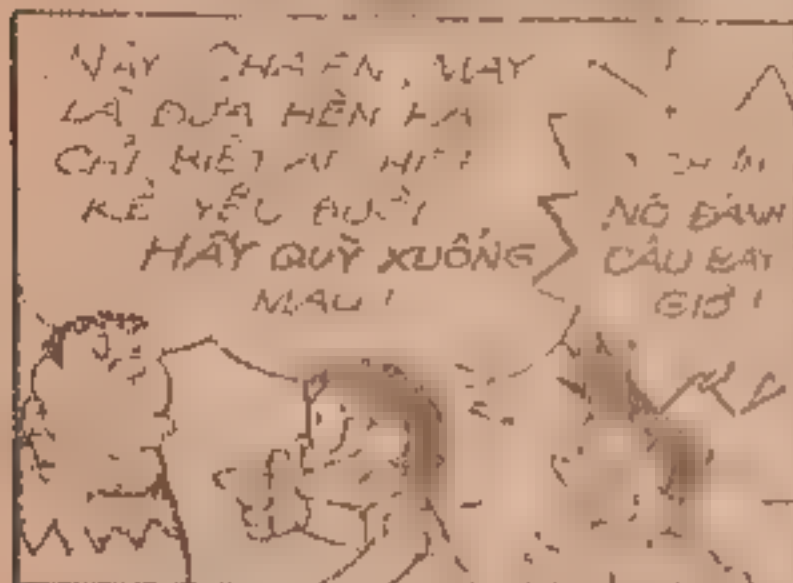 NÀY CHAIEN, MAY
LÀ ĐỨA HÈN HẠ
CHỈ BIẾT ĂN HIẾP
KẺ YẾU ĐUỐI
HÃY QUỲ XUỐNG
MAU !
NÓ ĐÁNH
CẬU BAY
GIỜ !